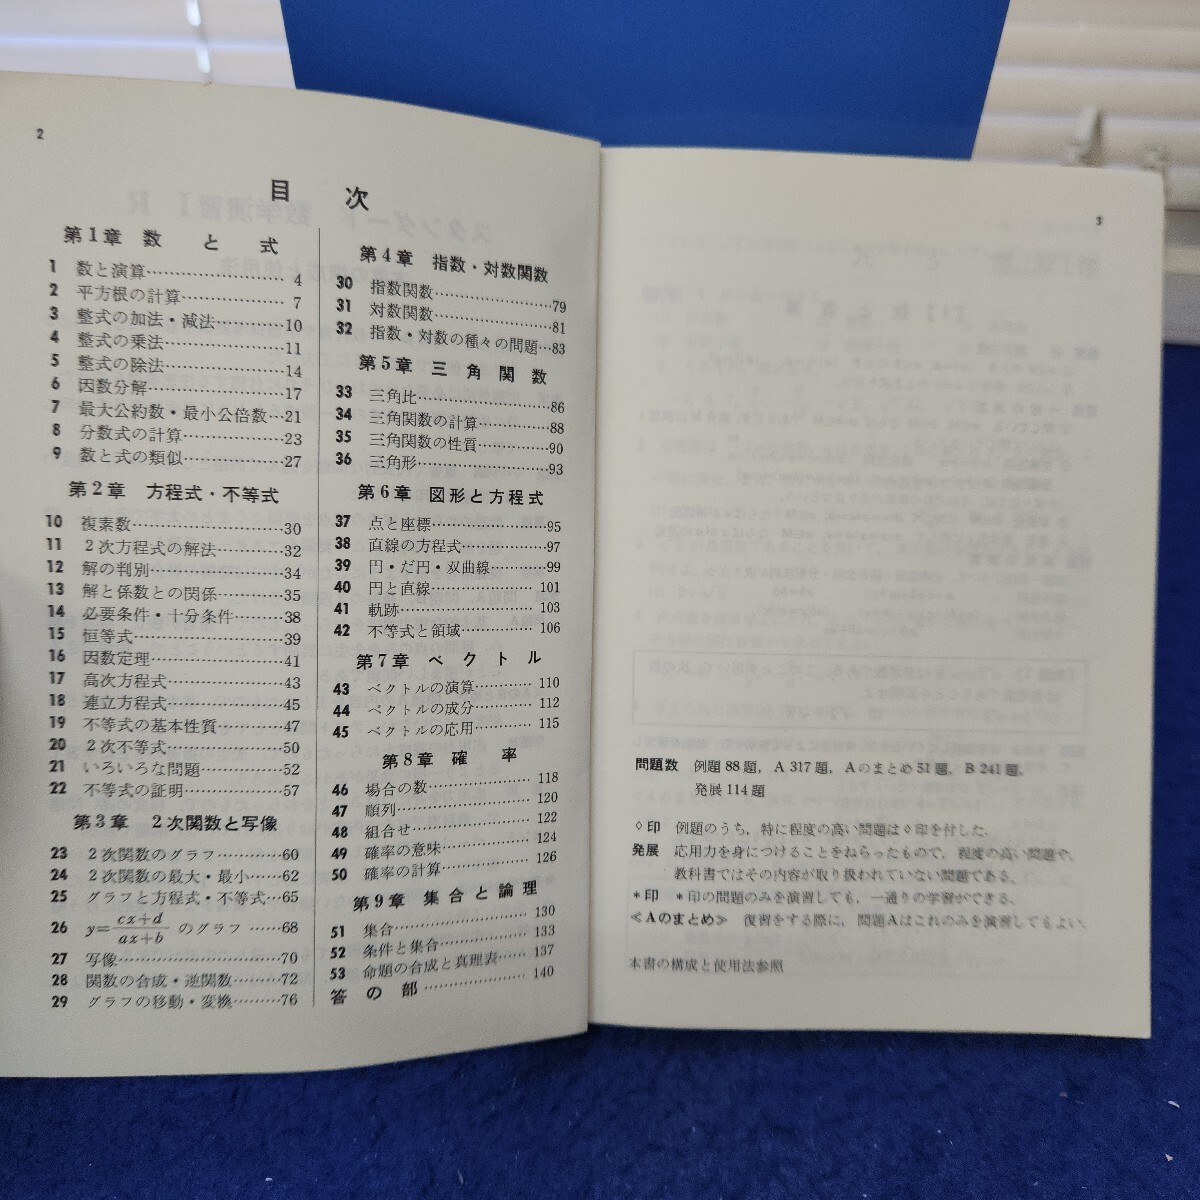 2
目 次
第1章 数 と 式
1 数と演算……………………4
2 平方根の計算………………7
3 整式の加法・減法…………10
4 整式の乗法…………………11
5 整式の除法…………………14
6 因数分解……………………17
7 最大公約数・最小公倍数…21
8 分数式の計算………………23
9 数と式の類似………………27
第2章 方程式・不等式
10 複素数………………………30
11 2次方程式の解法…………32
12 解の判別……………………34
13 解と係数との関係…………35
14 必要条件・十分条件………38
15 恒等式………………………39
16 因数定理……………………41
17 高次方程式…………………43
18 連立方程式…………………45
19 不等式の基本性質…………47
20 2次不等式…………………50
21 いろいろな問題……………52
22 不等式の証明………………57
第3章 2次関数と写像
23 2次関数のグラフ…………60
24 2次関数の最大・最小……62
25 グラフと方程式・不等式…65
26 y=(cx+d)/(ax+b) のグラフ ……68
27 写像…………………………70
28 関数の合成・逆関数………72
29 グラフの移動・変換………76
第4章 指数・対数関数
30 指数関数……………………79
31 対数関数……………………81
32 指数・対数の種々の問題…83
第5章 三 角 関 数
33 三角比………………………86
34 三角関数の計算……………88
35 三角関数の性質……………90
36 三角形………………………93
第6章 図形と方程式
37 点と座標……………………95
38 直線の方程式………………97
39 円・だ円・双曲線…………99
40 円と直線……………………101
41 軌跡…………………………103
42 不等式と領域………………106
第7章 ベ ク ト ル
43 ベクトルの演算…………110
44 ベクトルの成分…………112
45 ベクトルの応用…………115
第8章 確 率
46 場合の数…………………118
47 順列………………………120
48 組合せ……………………122
49 確率の意味………………124
50 確率の計算………………126
第9章 集 合 と 論 理
51 集合………………………130
52 条件と集合………………133
53 命題の合成と真理表……137
答 の 部 ………………140
3
問題数 例題88題, A 317題, Aのまとめ51題, B 241題,
発展114題
◇印 例題のうち, 特に程度の高い問題は◇印を付した.
発展 応用力を身につけることをねらったもので, 程度の高い問題や,
教科書ではその内容が取り扱われていない問題である.
*印 *印の問題のみを演習しても, 一通りの学習ができる.
≪Aのまとめ≫ 復習をする際に, 問題Aはこれのみを演習してもよい.
本書の構成と使用法参照